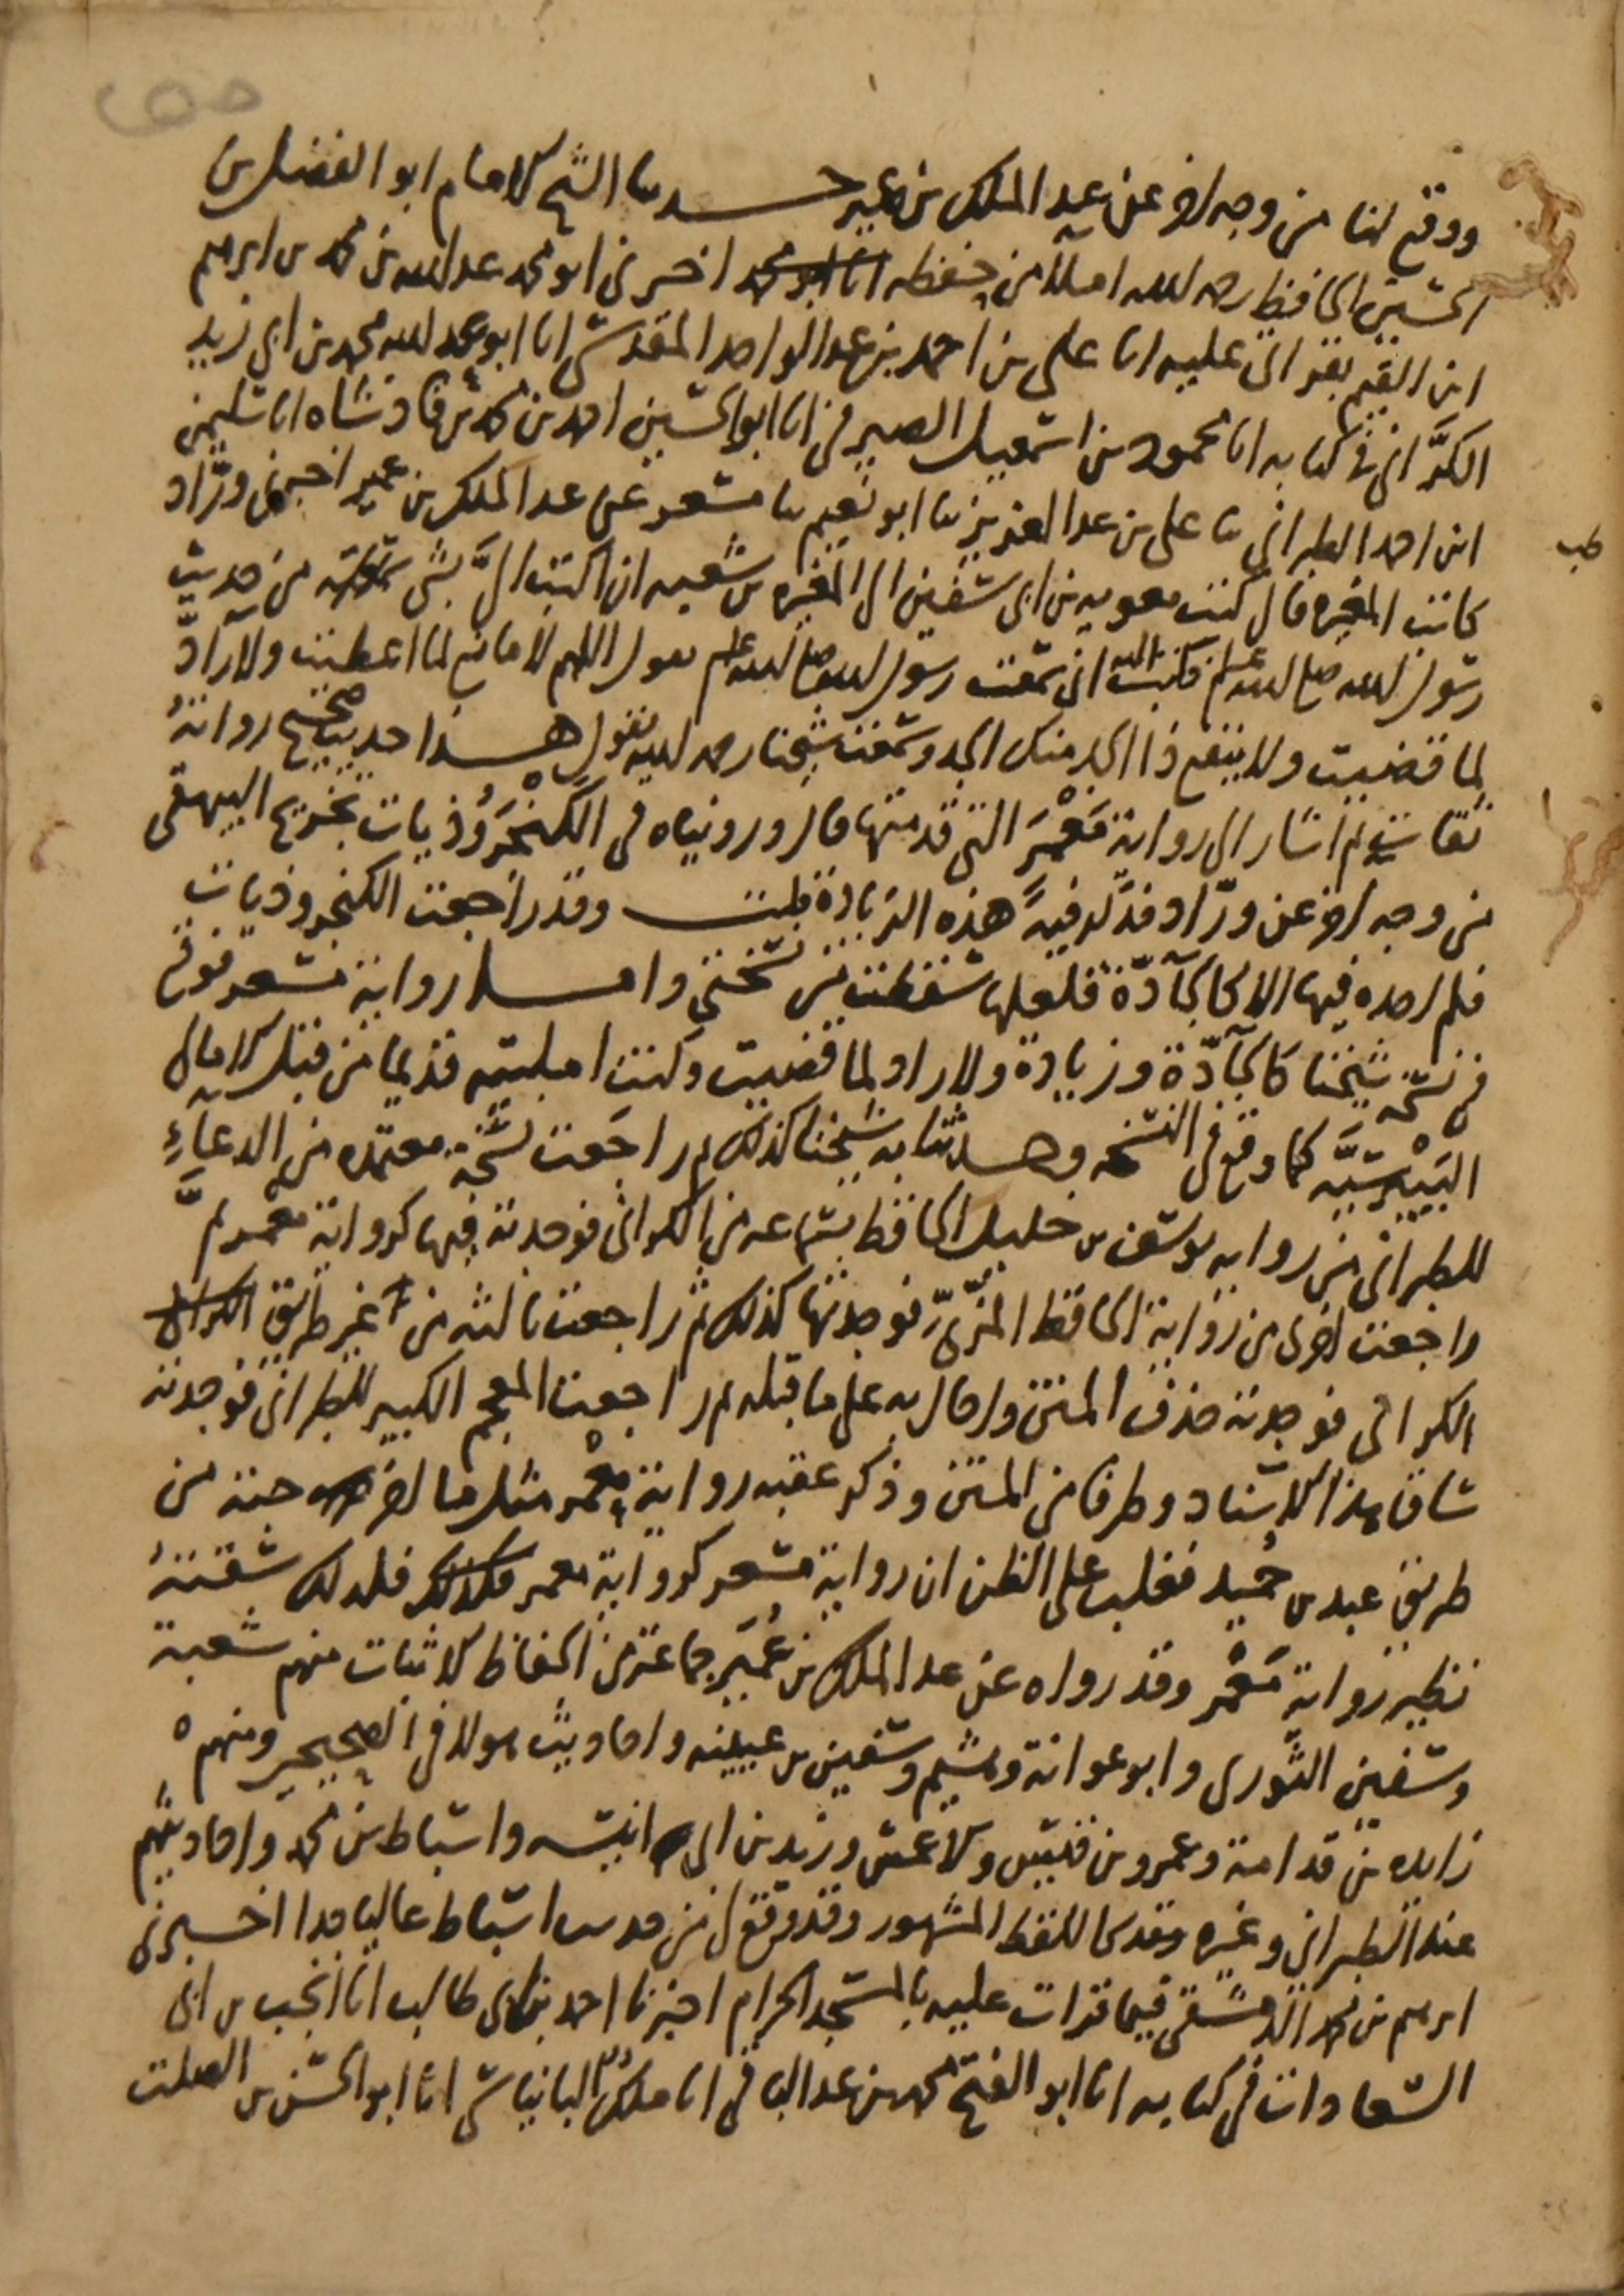 ووقع لنا من وجه اخر عن عبد الملك بن عمير حدثنا الشيخ الامام ابو الفضل بن
الحسين الحافظ رحمه الله املاء من حفظه اخبرني ابو محمد عبد الله بن محمد بن ابرهيم
ابن القيم بقراتي عليه انا علي بن احمد بن عبد الواحد المقدسي انا ابو عبد الله محمد بن ابي زيد
الكرّاني في كتابه انا محمود بن اسمعيل الصيرفي انا ابو الحسين احمد بن محمد بن فاذشاه انا سليمن
ابن احمد الطبراني ثنا علي بن عبد العزيز ثنا ابو نعيم ثنا مسعر عن عبد الملك بن عمير اخبرني ورّاد
طب
كاتب المغيرة قال كتب معوية بن ابي سفين الى المغيرة بن شعبه ان اكتب اليّ بشي سمعته من حديث
رسول الله صلى الله عليه وسلم فكتب اليه اني سمعت رسول الله صلى الله عليه وسلم يقول اللهم لا مانع لما اعطيت ولا رادّ
لما قضيت ولا ينفع ذا الجد منك الجد وسمعت شيخنا رحمه الله يقول هذا حديث صحيح رواته
ثقات ثم اشار الى رواية مَعْمَر التي قدمتها قال ورويناه في الكنجروذيات تخريج البيهقي
من وجه اخر عن ورّاد فذكر فيه هذه الزيادة قلت وقد راجعت الكنجروذيات
فلم اجده فيها الا كالجادّة فلعلها سقطت من نسختي واما رواية مسعر فوقع
في نسخة شيخنا كالجادّة وزيادة ولا راد لما قضيت وكنت امليته قديما من قبل الامالي
البيبرسيّه كما وقع في النسخه وحدثنا به شيخنا كذلك ثم راجعت نسخة معتمده من الدعاء
للطبراني من روايه يوسف بن خليل الحافظ بسماعه من الكراني فوجدته فيها كرواية معمر ثم
راجعت اخرى من رواية الحافظ المزّيّ فوجدتها كذلك ثم راجعت ثالثه من غير طريق
الكراني فوجدته حذف المتن واحال به على ما قبله ثم راجعت المعجم الكبير للطبراني فوجدته
ساق هذا الاسناد وطرفا من المتن وذكر عقبه رواية معمر مثل ما اخرجته من
طريق عبد بن حُميد فغلب على الظن ان رواية مسعر كرواية معمر فلذلك سقته
نظير رواية مَعْمر وقد رواه عن عبد الملك بن عُمَير جماعة من الحفاظ الاثبات منهم شعبة
وسفين الثوري وابو عوانة وهشيم وسفين بن عيينه واحاديث هولاء في الصحيحين ومنهم
زايده بن قدامة وعمرو بن قيس والاعمش وزيد بن ابي انيسه واسباط بن محمد واحاديثهم
عند الطبراني وغيره وقد وقع لي من حديث اسباط عاليا جدا اخبرني
ابرهيم بن محمد الدمشقي فيما قرات عليه بالمسجد الحرام اخبرنا احمد بن ابي طالب انا انجب بن ابي
السعادات في كتابه انا ابو الفتح محمد بن عبد الباقي انا ملك البانياسي انا ابو الحسن بن الصلت